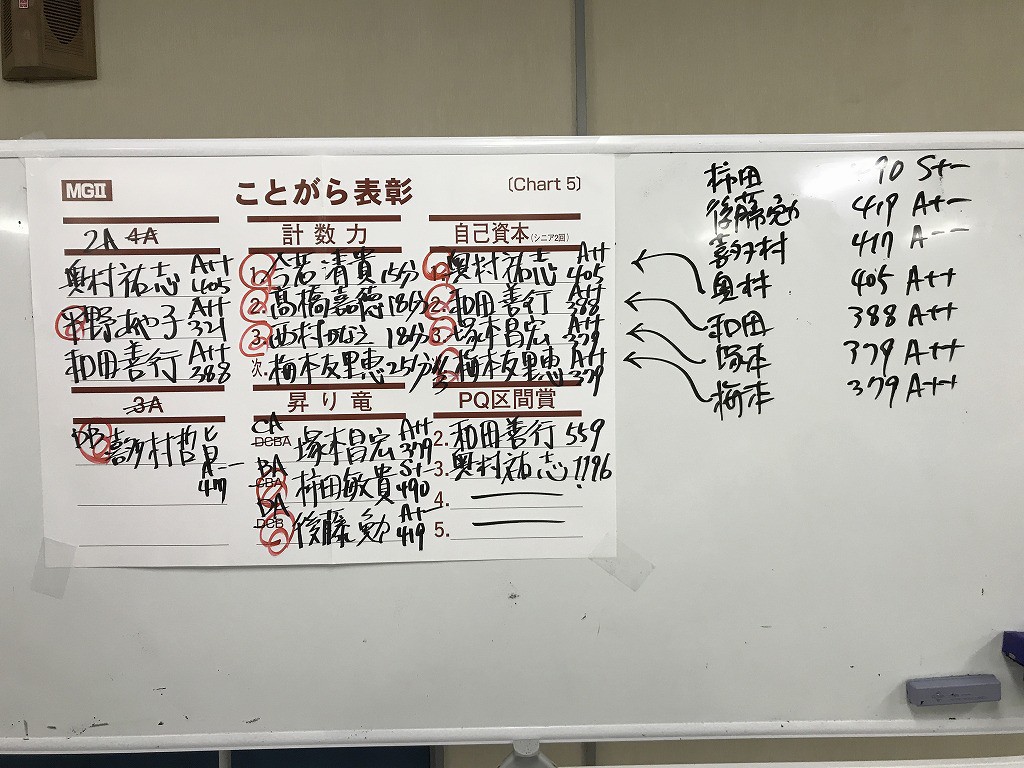 MGⅡ
ことがら表彰
〔Chart 5〕
2A 4A
奥村祐志 A++ 405
野あや子 A++ 321
和田善行 A++ 388
3A
DB 喜多村哲 A-- 417
計数力
1. 清貴 15分
2. 髙橋嘉德 18分
3. 西村 18分
次. 梅本友里恵 25分
昇り竜
CA DCBA 塚本昌宏 A++ 379
BA CBA 柿田敏貴 S+- 490
DA DCB 後藤勉 A+- 419
自己資本(シニア2回)
1. 奥村祐志 A++ 405
2. 和田善行 A++ 388
3. 塚本昌宏 A++ 379
梅本友里恵 A++ 379
PQ区間賞
2. 和田善行 559
3. 奥村祐志 1196
4.
5.
柿田 90 S+-
後藤勉 419 A+-
喜多村 417 A--
奥村 405 A++
和田 388 A++
塚本 379 A++
梅本 379 A++